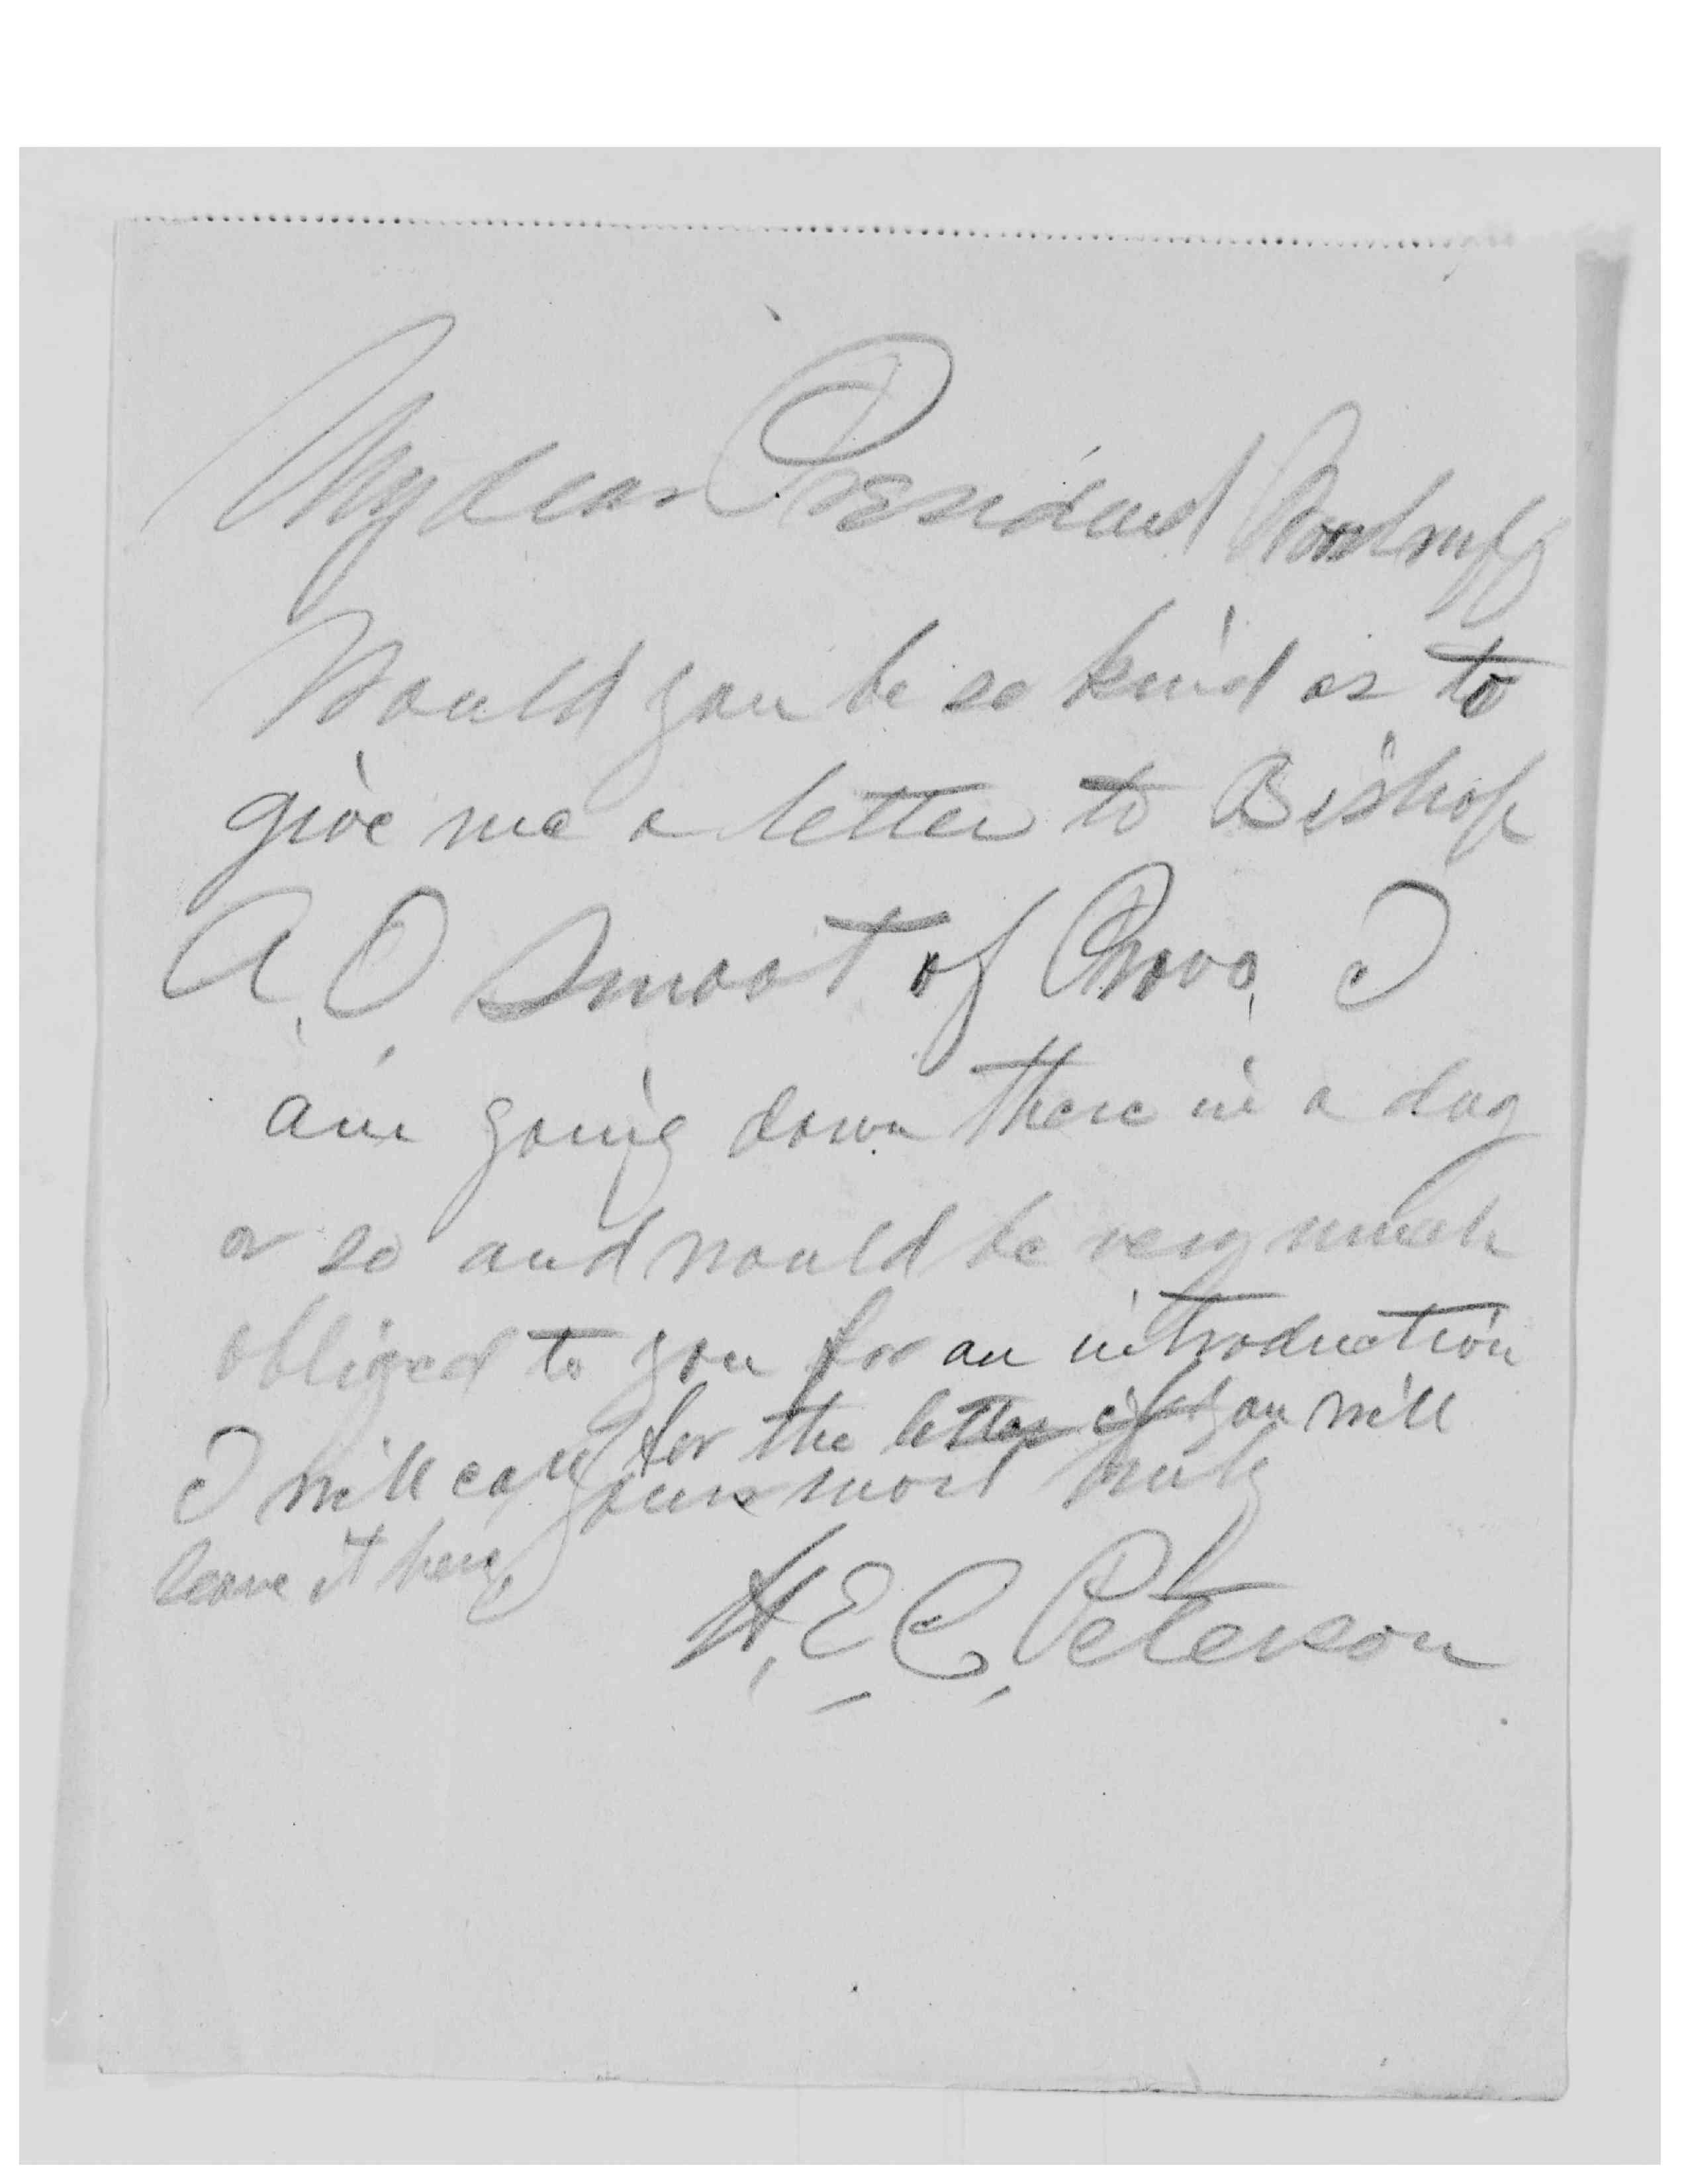 My dear President Woodruff
Would you be so kind as to
give me a letter to Bishop
A. O. Smoot of Provo, I
am going down there in a day
or so and would be very much
obliged to you for an introduction
I will call for the letter if you will
leave it here
yours most truly
H. E. C. Peterson